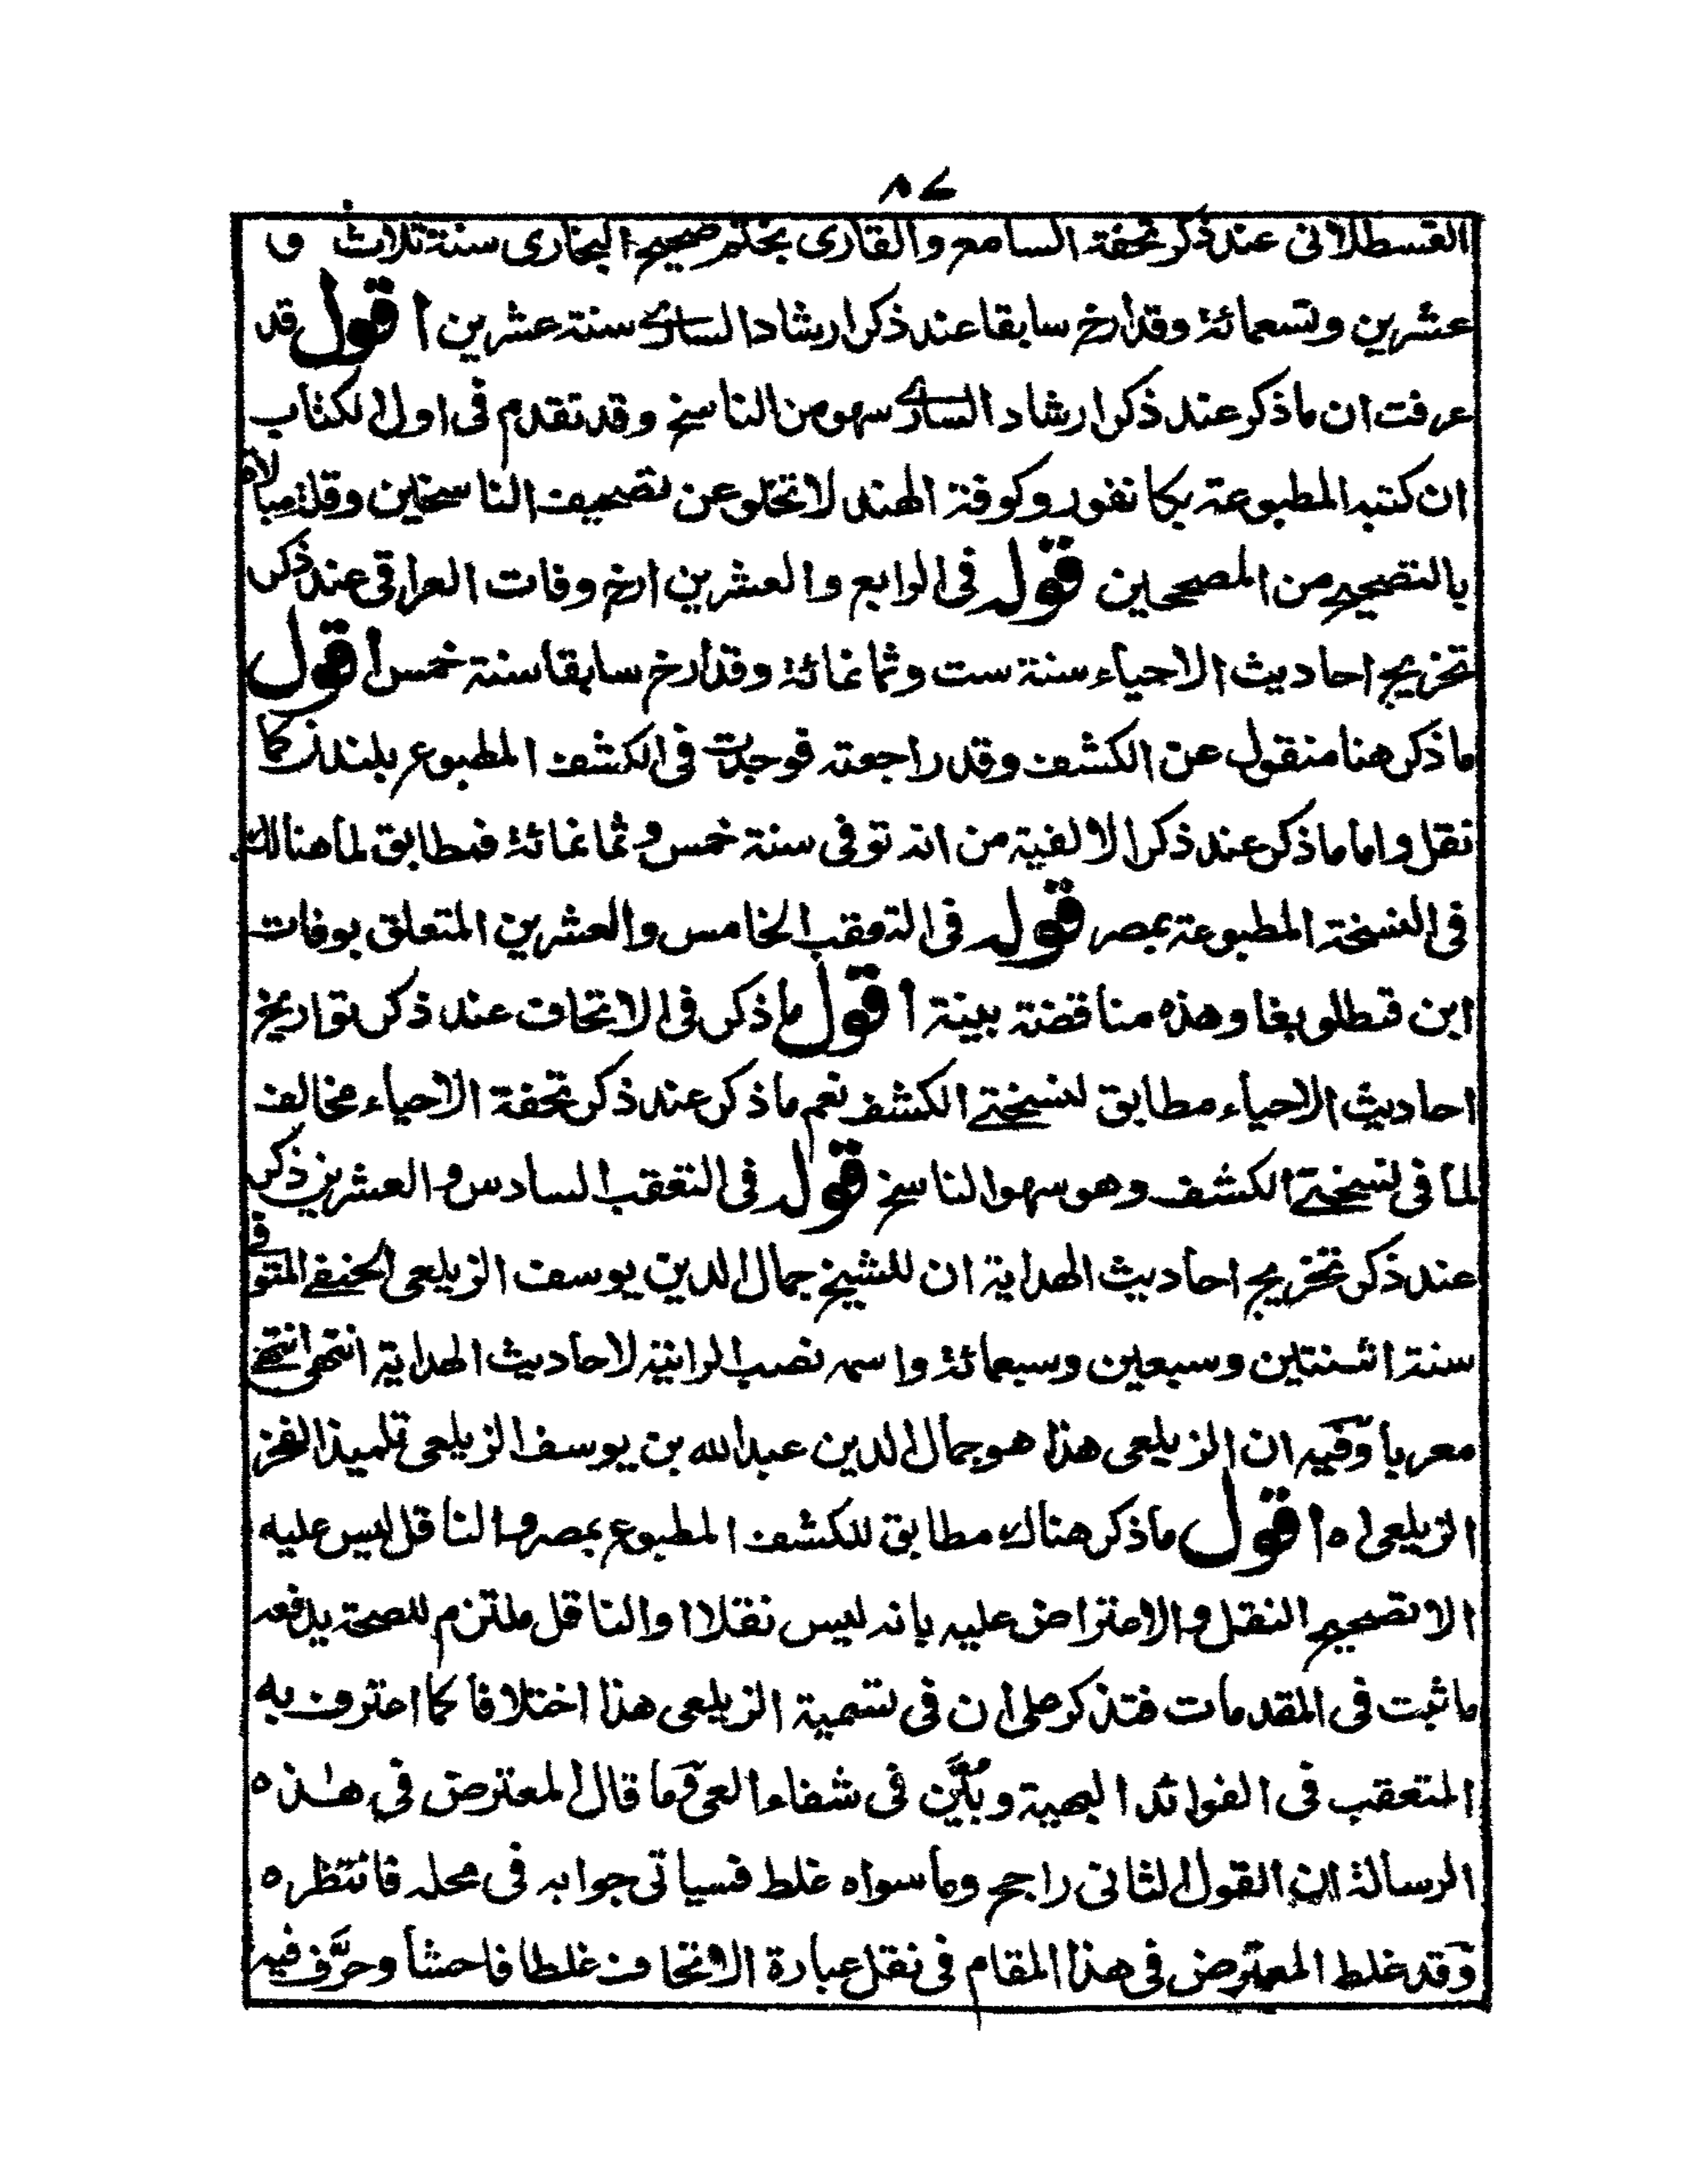 ٨٧
القسطلانى عند ذكر تحفة السامع والقارى بختم صحيح البخارى سنة ثلاث و
عشرين وتسعمائة وقد ارخ سابقا عند ذكر ارشاد السارى سنة عشرين اقول قد
عرفت ان ما ذكر عند ذكر ارشاد السارى سهو من الناسخ وقد تقدم فى اول الكتاب
ان كتبه المطبوعة بكانفور وكوفة الهند لا تخلو عن تصحيف الناسخين وقلة مبالاة
بالتصحيح من المصححين قوله فى الرابع والعشرين ارخ وفات العراقى عند ذكر
تخريج احاديث الاحياء سنة ست وثمانمائة وقد ارخ سابقا سنة خمس اقول
ما ذكر هنا منقول عن الكشف وقد راجعته فوجدت فى الكشف المطبوع بلندن كما
نقل واما ما ذكر عند ذكر الالفية من انه توفى سنة خمس وثمانمائة فمطابق لما هنالك
فى النسخة المطبوعة بمصر قوله فى التعقب الخامس والعشرين المتعلق بوفات
ابن قطلوبغا وهذه مناقضة بينة اقول ما ذكر فى الاتحاف عند ذكر تواريخ
احاديث الاحياء مطابق لنسختے الكشف نعم ما ذكر عند ذكر تحفة الاحياء مخالف
لما فى نسختے الكشف وهو سهو الناسخ قوله فى التعقب السادس والعشرين ذكر
عند ذكر تخريج احاديث الهداية ان للشيخ جمال الدين يوسف الزيلعى الحنفے المتوفے
سنة اثنتين وسبعين وسبعمائة واسمه نصب الراية لاحاديث الهداية انتهى انتهے
معربا وفيه ان الزيلعى هذا هو جمال الدين عبد الله بن يوسف الزيلعى تلميذ الفخر
الزيلعى اه اقول ما ذكر هناك مطابق للكشف المطبوع بمصر والناقل ليس عليه
الا تصحيح النقل والاعتراض عليه بانه ليس نقلا اوالناقل ملتزم للصحة يدفعه
ما ثبت فى المقدمات فتذكر على ان فى تسمية الزيلعى هذا اختلافا كما اعترف به
المتعقب فى الفوائد البهية وبُيِّن فى شفاء العى وما قال المعترض فى هٰذه
الرسالة ان القول الثانى راجح وما سواه غلط فسياتى جوابه فى محله فانتظره
وقد غلط المعترض فى هذا المقام فى نقل عبارة الاتحاف غلطا فاحشا وحرَّف فيه